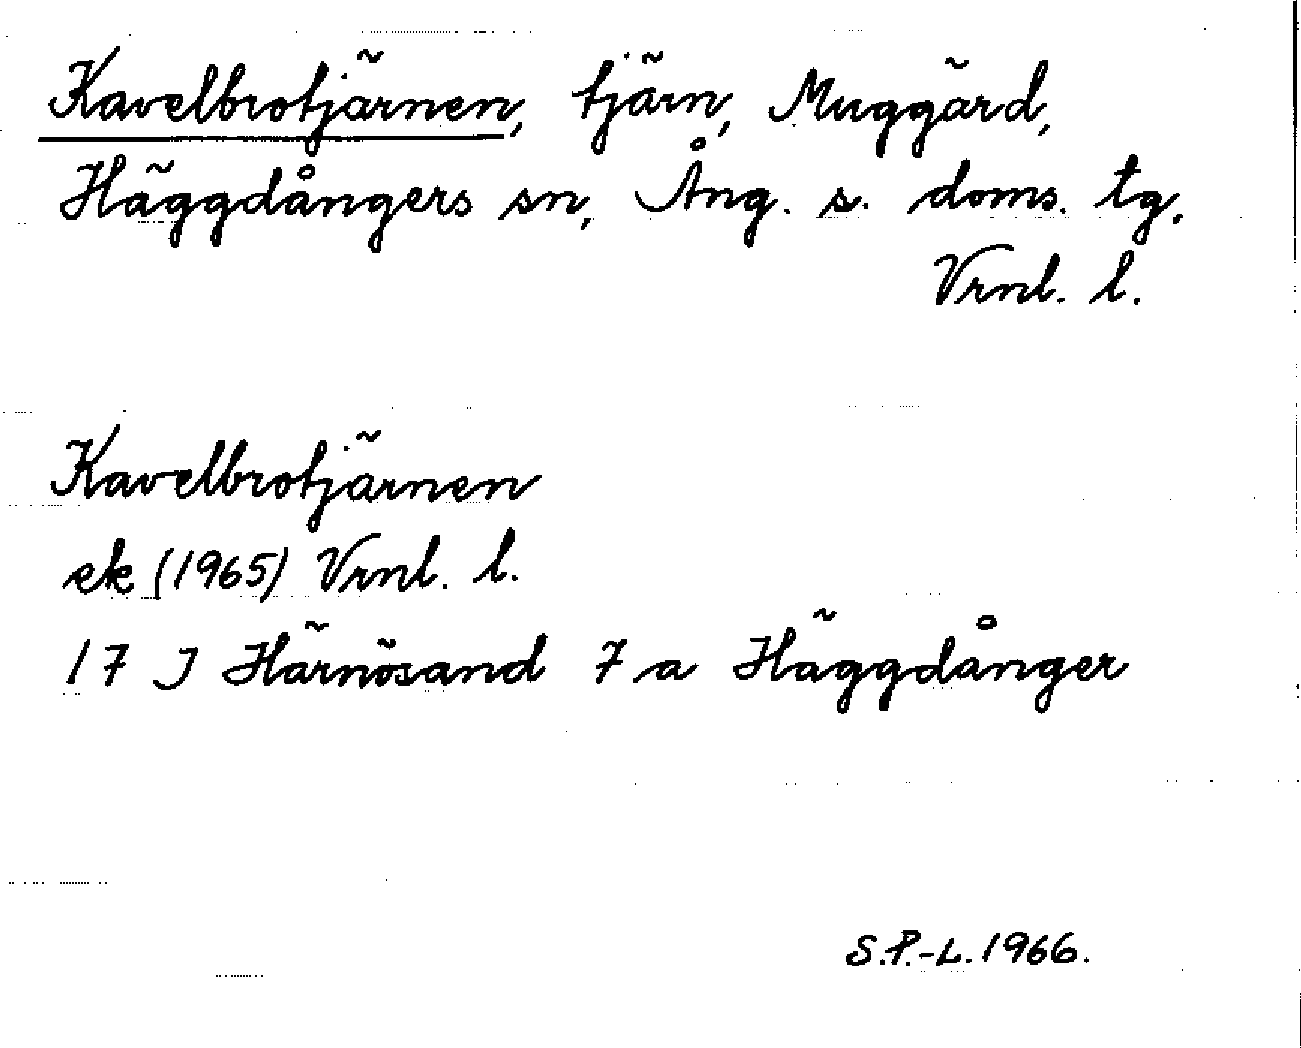 Kavelbrotjärnen, tjärn, Muggärd,
Häggdångers sn, Ång. s. doms. tg.
Vrnl. l.
Kavelbrotjärnen
ek (1965) Vrnl. l.
17 J Härnösand 7 a Häggdånger
S.P.-L. 1966.